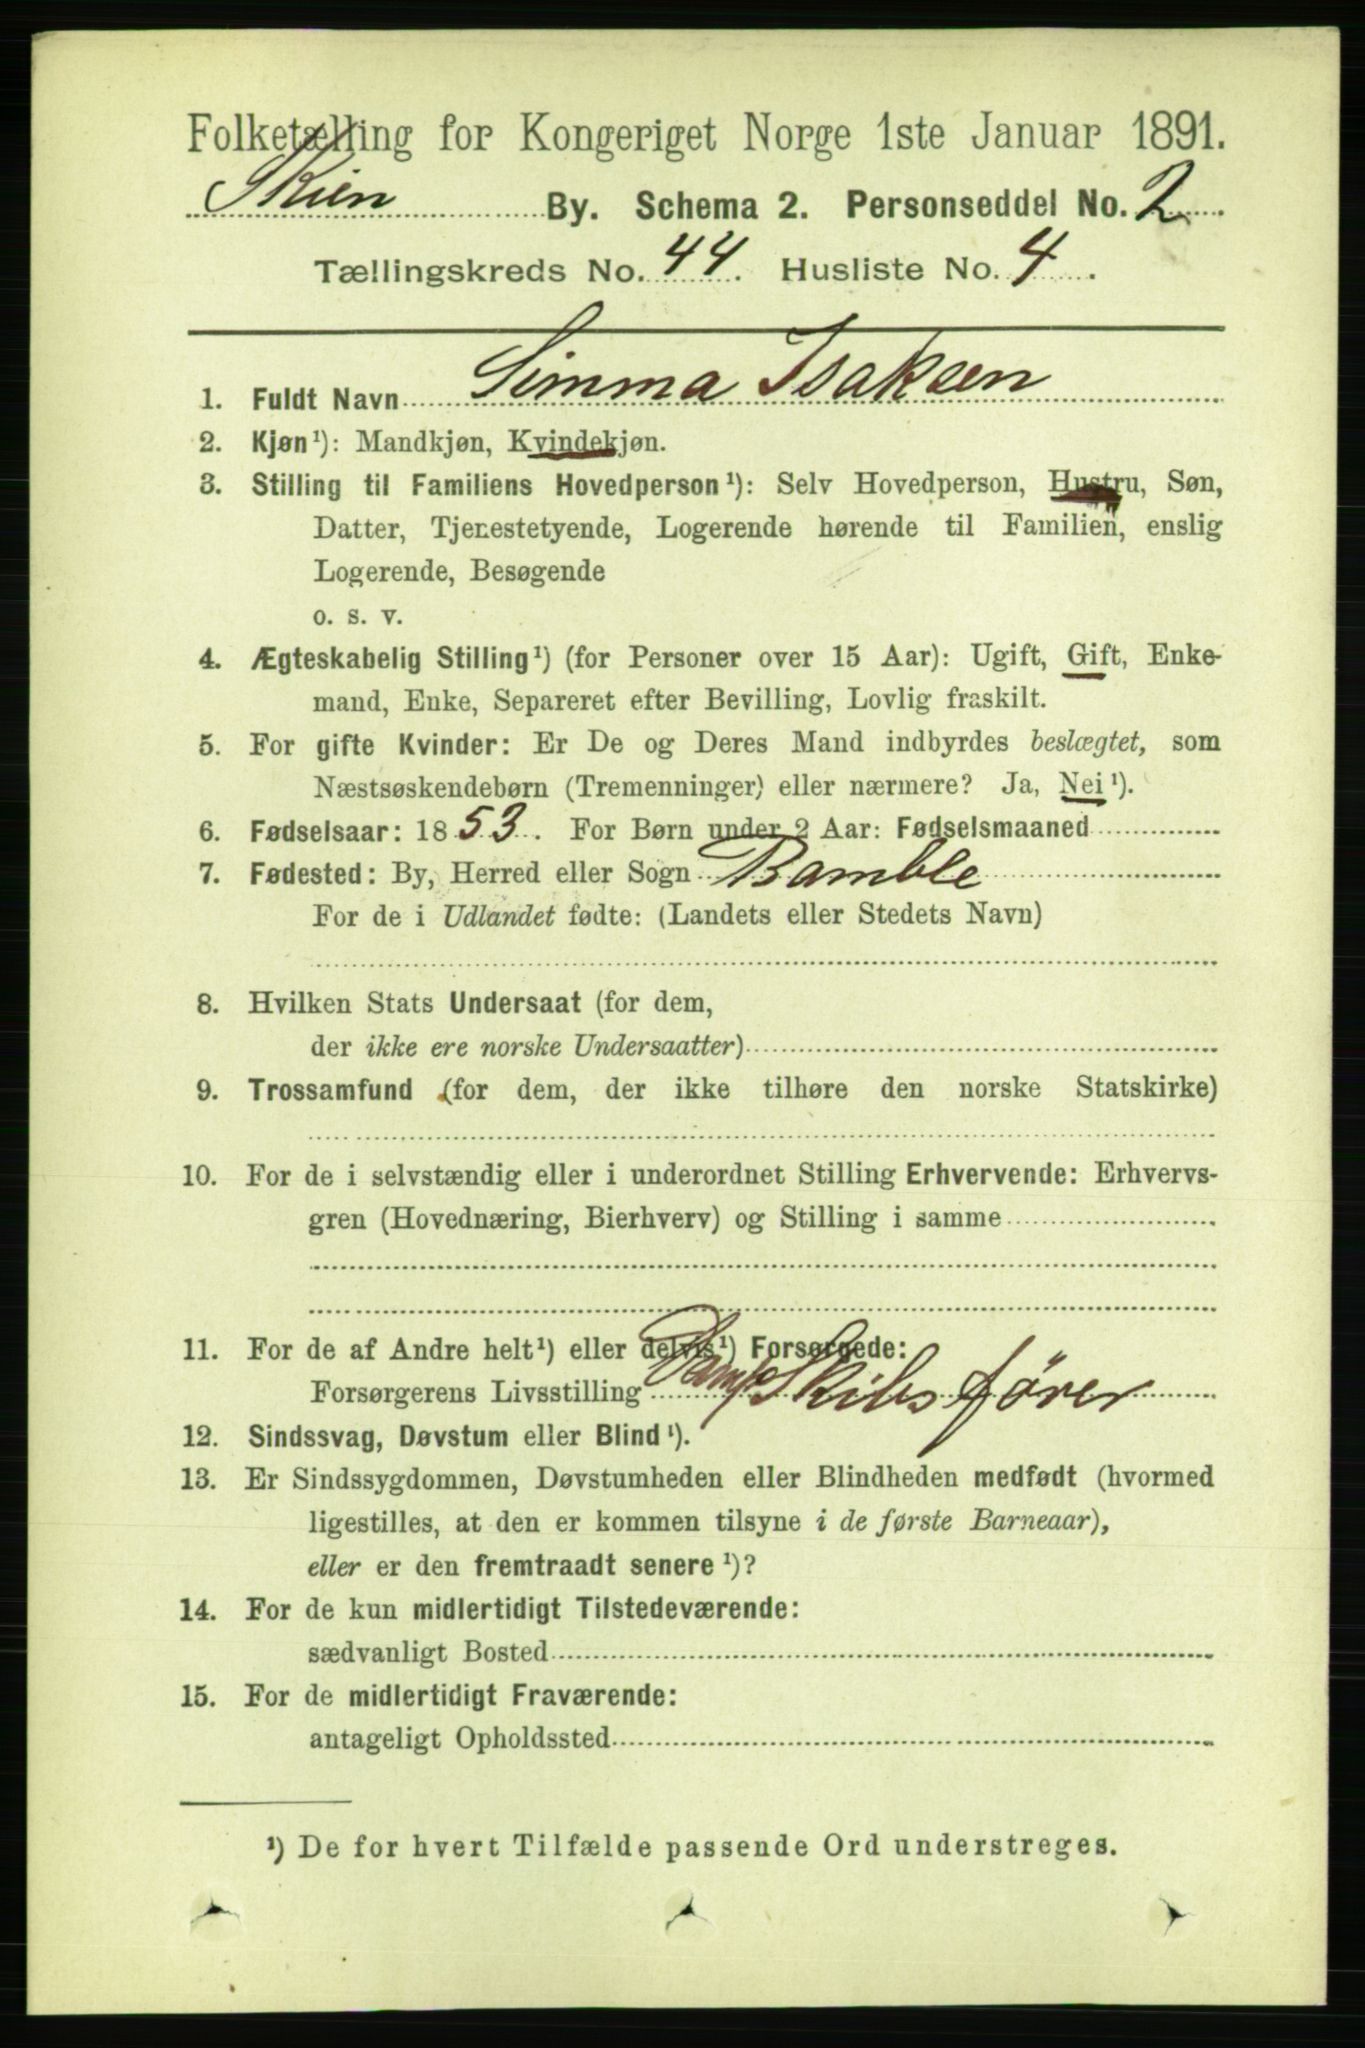 Folketælling for Kongeriget Norge 1ste Januar 1891.
Skien By. Schema 2. Personseddel No. 2
Tællingskreds No. 44. Husliste No. 4.
1. Fuldt Navn Simma Isaksen
2. Kjøn¹): Mandkjøn, Kvindekjøn.
3. Stilling til Familiens Hovedperson¹): Selv Hovedperson, Hustru, Søn,
Datter, Tjenestetyende, Logerende hørende til Familien, enslig
Logerende, Besøgende
o. s. v.
4. Ægteskabelig Stilling¹) (for Personer over 15 Aar): Ugift, Gift, Enke-
mand, Enke, Separeret efter Bevilling, Lovlig fraskilt.
5. For gifte Kvinder: Er De og Deres Mand indbyrdes beslægtet, som
Næstsøskendebørn (Tremenninger) eller nærmere? Ja, Nei¹).
6. Fødselsaar: 1853. For Børn under 2 Aar: Fødselsmaaned
7. Fødested: By, Herred eller Sogn Bamble
For de i Udlandet fødte: (Landets eller Stedets Navn)
8. Hvilken Stats Undersaat (for dem,
der ikke ere norske Undersaatter)
9. Trossamfund (for dem, der ikke tilhøre den norske Statskirke)
10. For de i selvstændig eller i underordnet Stilling Erhvervende: Erhvervs-
gren (Hovednæring, Bierhverv) og Stilling i samme
11. For de af Andre helt¹) eller delvis¹) Forsørgede:
Forsørgerens Livsstilling DampSkibsfører
12. Sindssvag, Døvstum eller Blind¹).
13. Er Sindssygdommen, Døvstumheden eller Blindheden medfødt (hvormed
ligestilles, at den er kommen tilsyne i de første Barneaar),
eller er den fremtraadt senere¹)?
14. For de kun midlertidigt Tilstedeværende:
sædvanligt Bosted
15. For de midlertidigt Fraværende:
antageligt Opholdssted
¹) De for hvert Tilfælde passende Ord understreges.